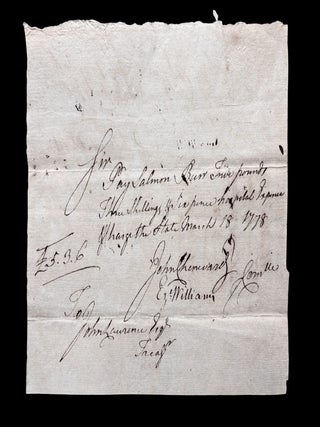 Sir
Pay Salmon Burr Five pounds
Three Shillings & Sixpence hospital Expence
& Charge the State March 18 1778
£5.3.6
John Chenevard
Ez Williams
Comtte
To
John Lawrence Esqr
Treasr